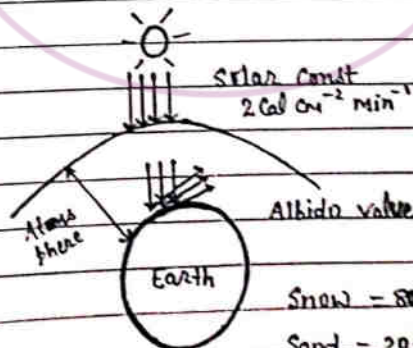 Solar Const
2 Cal cm⁻² min⁻¹
Atmos
phere
Albido value
Earth
Snow -
Sand -